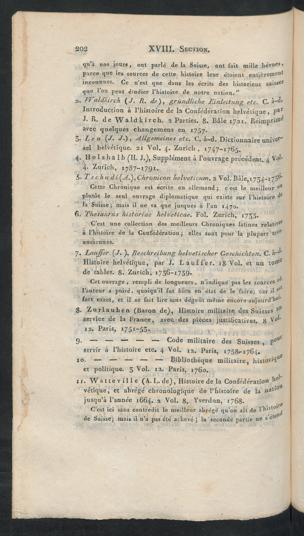 202 XVIII. Section.
qu'à nos jours, ont parlé de la Suisse, ont fait mille bévues,
parce que les sources de cette histoire leur étoient entièrement
inconnues. Ce n'est que dans les écrits des historiens suisses
que l'on peut étudier l'histoire de notre nation."
2. Waldkirch (J. R. de), gründliche Einleitung etc. C. à-d.
Introduction à l'histoire de la Confédération helvétique, par
J. R. de Waldkirch. 2 Parties. 8. Bâle 1721. Réimprimé
avec quelques changemens en 1757.
3. Leu (J. J.), Allgemeines etc. C. à-d. Dictionnaire univer-
sel helvétique. 21 Vol. 4. Zurich, 1747-1765.
4. Holzhalb (H. J.), Supplément à l'ouvrage précédent. 4 Vol.
4. Zurich, 1787-1791.
5. Tschudi (A.), Chronicon helveticum. 2 Vol. Bâle, 1734-1736.
Cette Chronique est écrite en allemand; c'est le meilleur
plutôt le seul ouvrage diplomatique qui existe sur l'histoire de
la Suisse; mais il ne va que jusques à l'an 1470.
6. Thesaurus historiae helveticae. Fol. Zurich, 1735.
C'est une collection des meilleurs Chroniques latines relatives
à l'histoire de la Confédération; elles sont pour la plupart très
anciennes.
7. Lauffer (J. J.), Beschreibung helvetischer Geschichten. C. à-d.
Histoire helvétique, par J. Lauffer. 18 Vol. et un tome
de tables. 8. Zurich, 1736-1739.
Cet ouvrage, rempli de longueurs, n'indique pas les sources où
l'auteur a puisé, quoiqu'il fut fort en état de le faire, car il
fort exact, et il se fait lire sans dégoût même encore aujourd'hui.
8. Zurlauben (Baron de), Histoire militaire des Suisses au
service de la France, avec des pièces justificatives. 8 Vol.
12. Paris, 1751-53.
9. — — — — Code militaire des Suisses, pour
servir à l'histoire etc. 4 Vol. 12. Paris, 1758-1764.
10. — — — — Bibliothèque militaire, historique
et politique. 3 Vol. 12. Paris, 1760.
11. Watteville (A. L. de), Histoire de la Confédération hel-
vétique, et abrégé chronologique de l'histoire de la nation
jusqu'à l'année 1664. 2 Vol. 8. Yverdun, 1768.
C'est ici sans contredit le meilleur abrégé qu'on ait de l'histoire
de Suisse; mais il n'a pas été achevé; la seconde partie ne s'étend